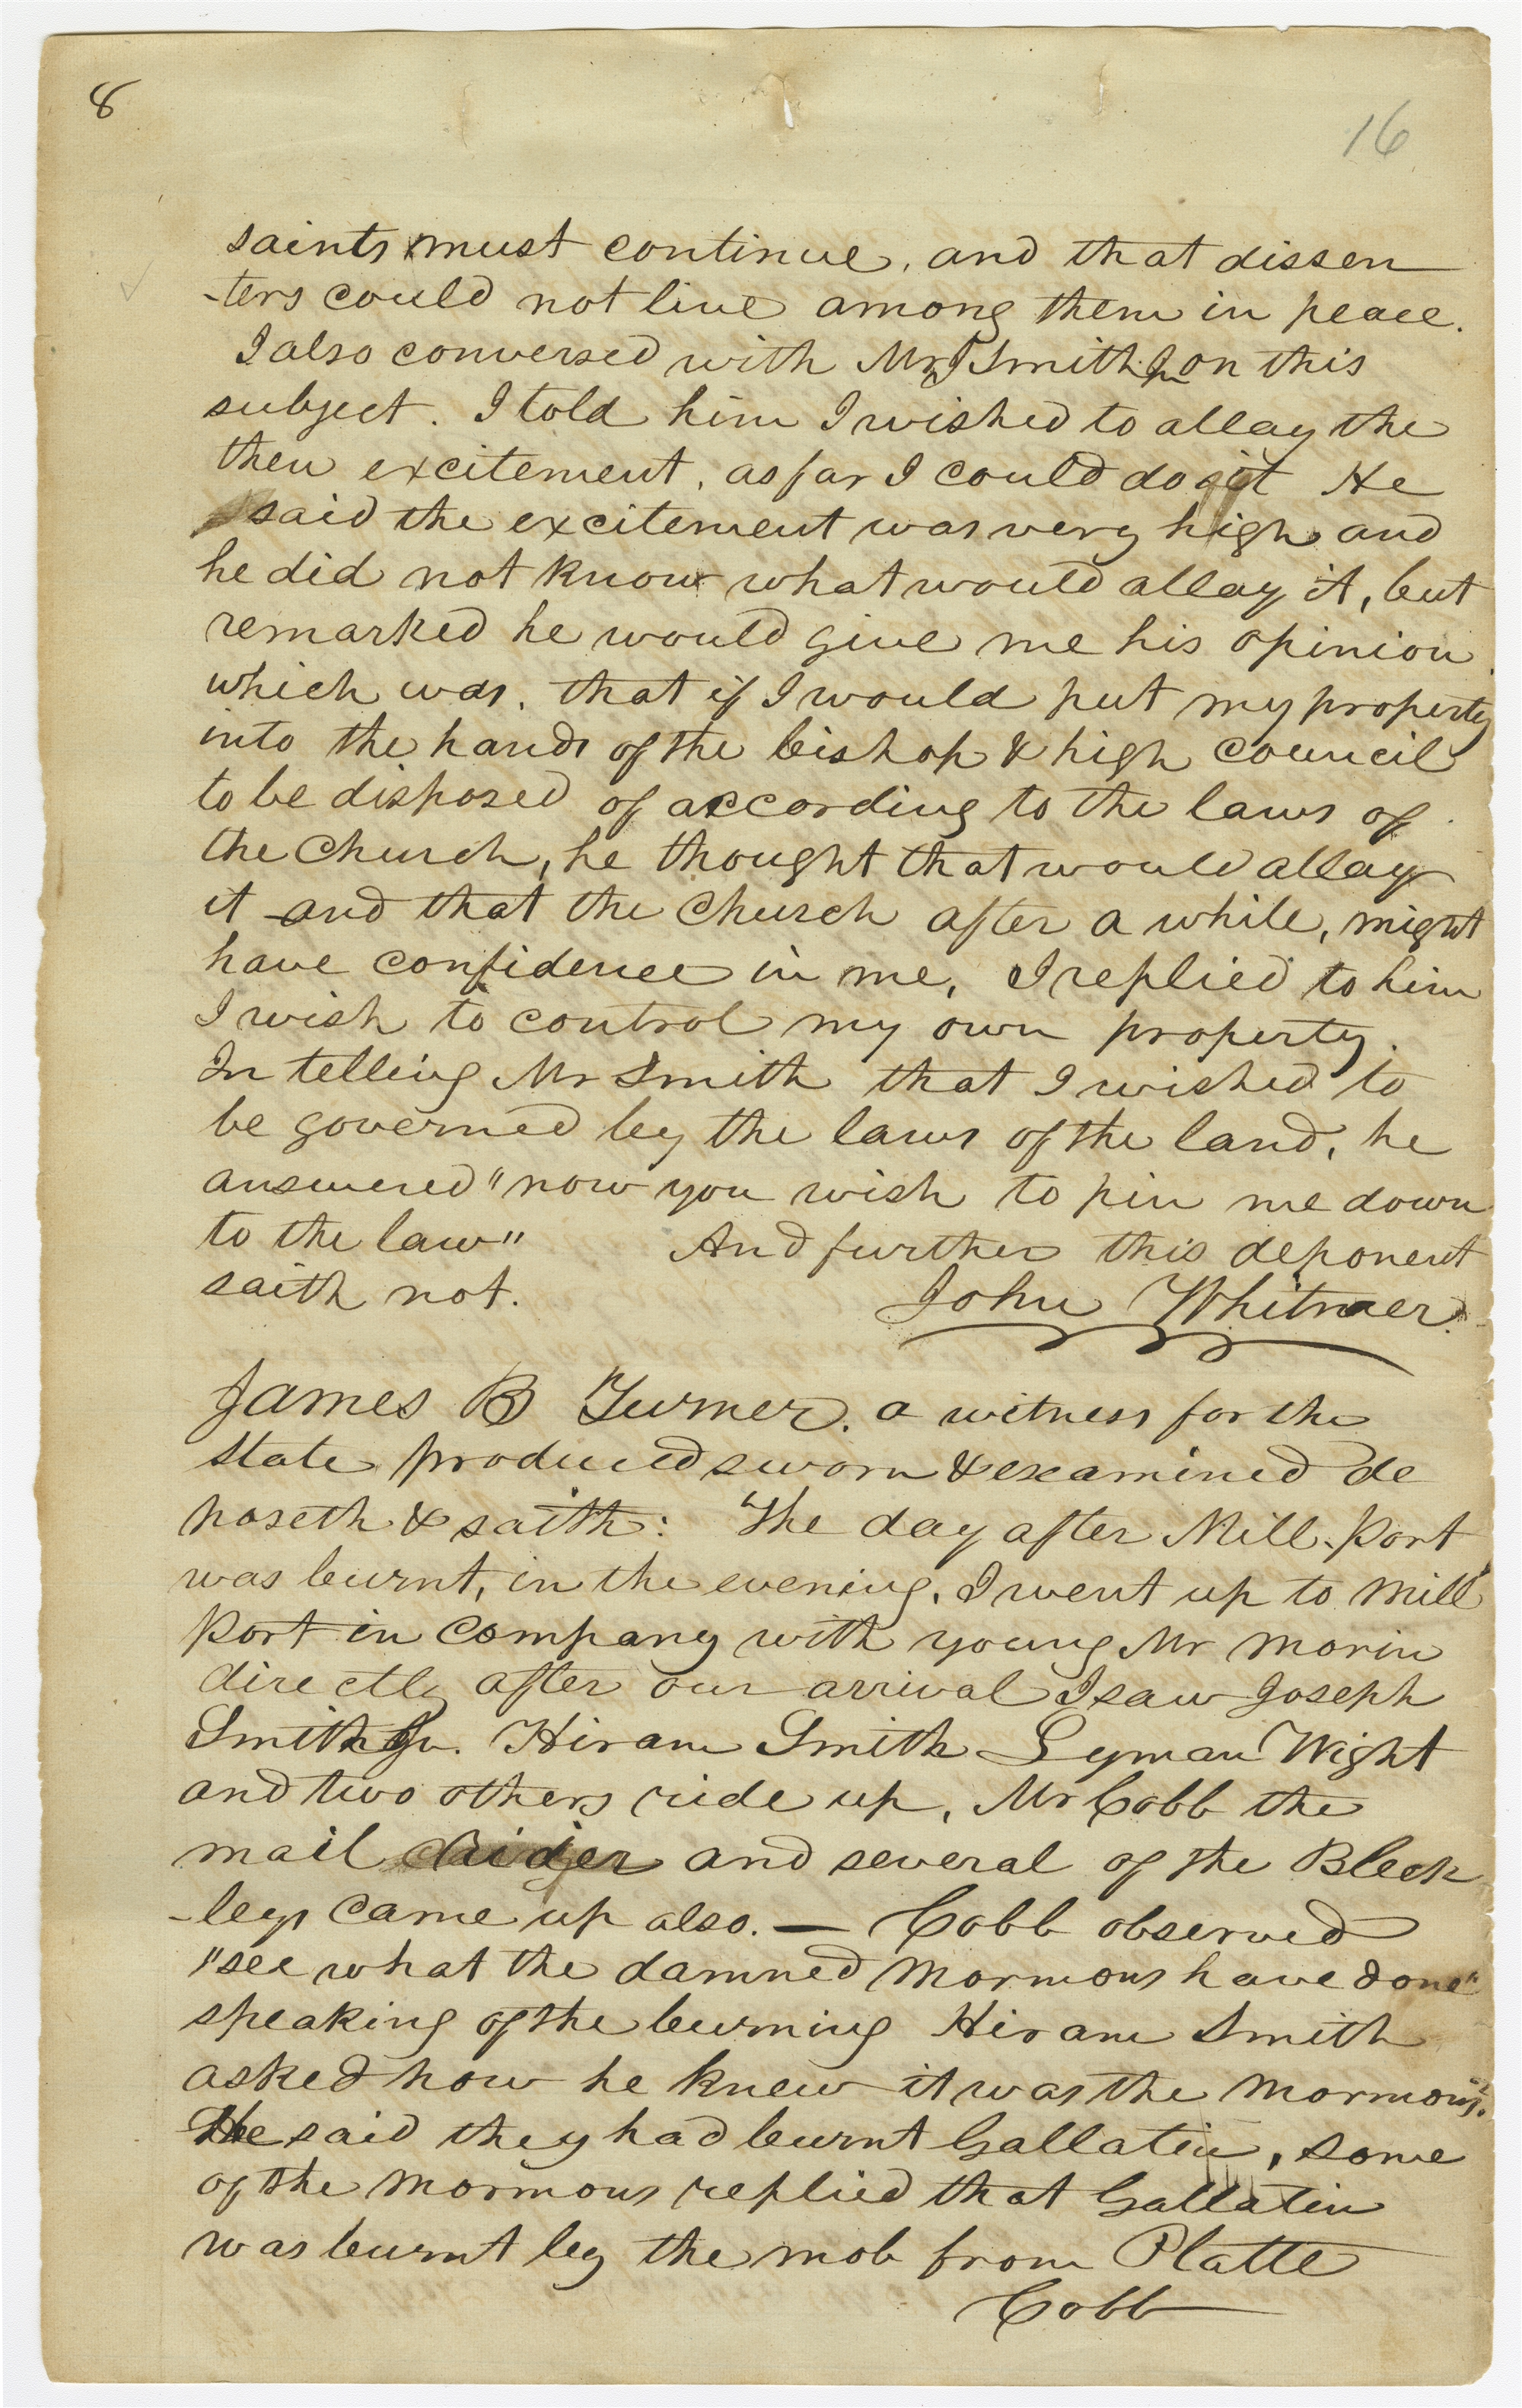 8
16
saints must continue, and that dissen
-ters could not live among them in peace.
I also conversed with Mr J Smith Jr on this
subject. I told him I wished to allay the
then excitement, as far I could do it He
said the excitement was very high and
he did not know what would allay it, but
remarked he would give me his opinion
which was, that if I would put my property
into the hands of the bishop & high council
to be disposed of according to the laws of
the Church, he thought that would allay
it and that the Church after a while, might
have confidence in me, I replied to him
I wish to control my own property.
In telling Mr Smith that I wished to
be governed by the laws of the land, he
answered "now you wish to pin me down
to the law" And further this deponent
saith not.
John Whitmer.
James B Turner. a witness for the
state produced sworn & examined de
poseth & saith: The day after Mill-Port
was burnt, in the evening, I went up to Mill
Port in company with young Mr Morin
directly after our arrival I saw Joseph
Smith Jr. Hiram Smith Lyman Wight
and two others ride up, Mr Cobb the
mail rider and several of the Black
-legs came up also. — Cobb observed
"see what the damned Mormons have done"
speaking of the burning Hiram Smith
asked how he knew it was the Mormons.
He said they had burnt Gallatin, some
of the Mormons replied that Gallatin
was burnt by the mob from Platte
Cobb